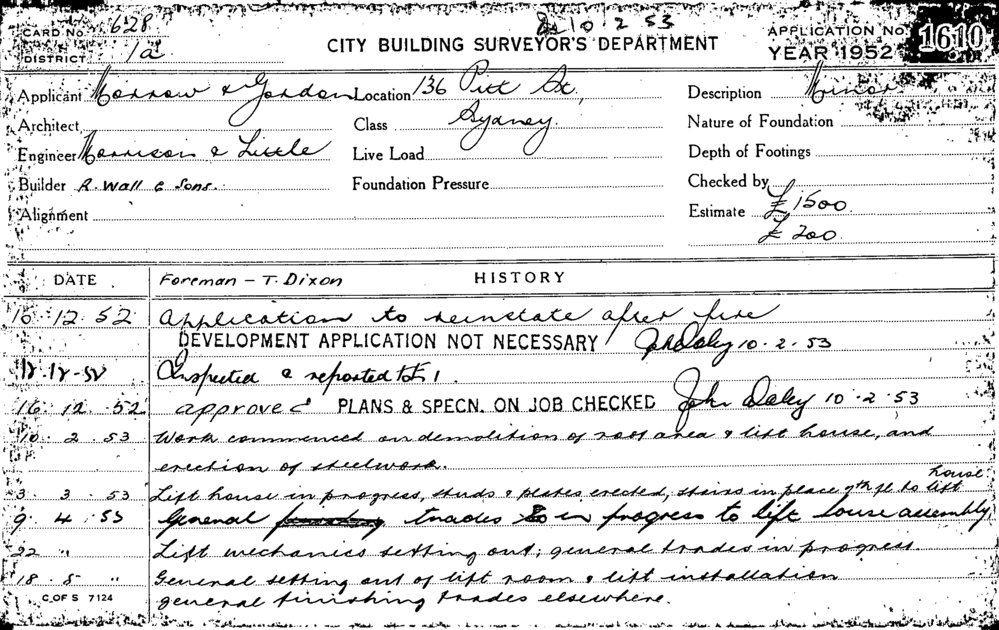 CARD No. 628 Es 10.2.53 APPLICATION No. 1610
DISTRICT 1a CITY BUILDING SURVEYOR'S DEPARTMENT YEAR 1952
Applicant Morrow & Gordon Location 136 Pitt St., Description Minor
Architect Class Sydney. Nature of Foundation
Engineer Morrison & Little Live Load Depth of Footings
Builder R. Wall & Sons. Foundation Pressure Checked by
Alignment Estimate £1500.
£200.
DATE Foreman - T. Dixon HISTORY
10.12.52 Application to reinstate after fire
DEVELOPMENT APPLICATION NOT NECESSARY John Daley 10.2.53
12.12.52 Inspected & reported to 1.
16.12.52 approved PLANS & SPECN. ON JOB CHECKED John Daley 10.2.53
10.2.53 Work commenced on demolition of roof area & lift house, and
erection of steelwork.
house
3.3.53 Lift house in progress, studs & plates erected, stairs in place 9th fl. to lift
9.4.53 General trades in progress to lift house assembly
22 " Lift mechanics setting out; general trades in progress.
18.5 " General setting out of lift room & lift installation
C.OF S 7124 general finishing trades elsewhere.